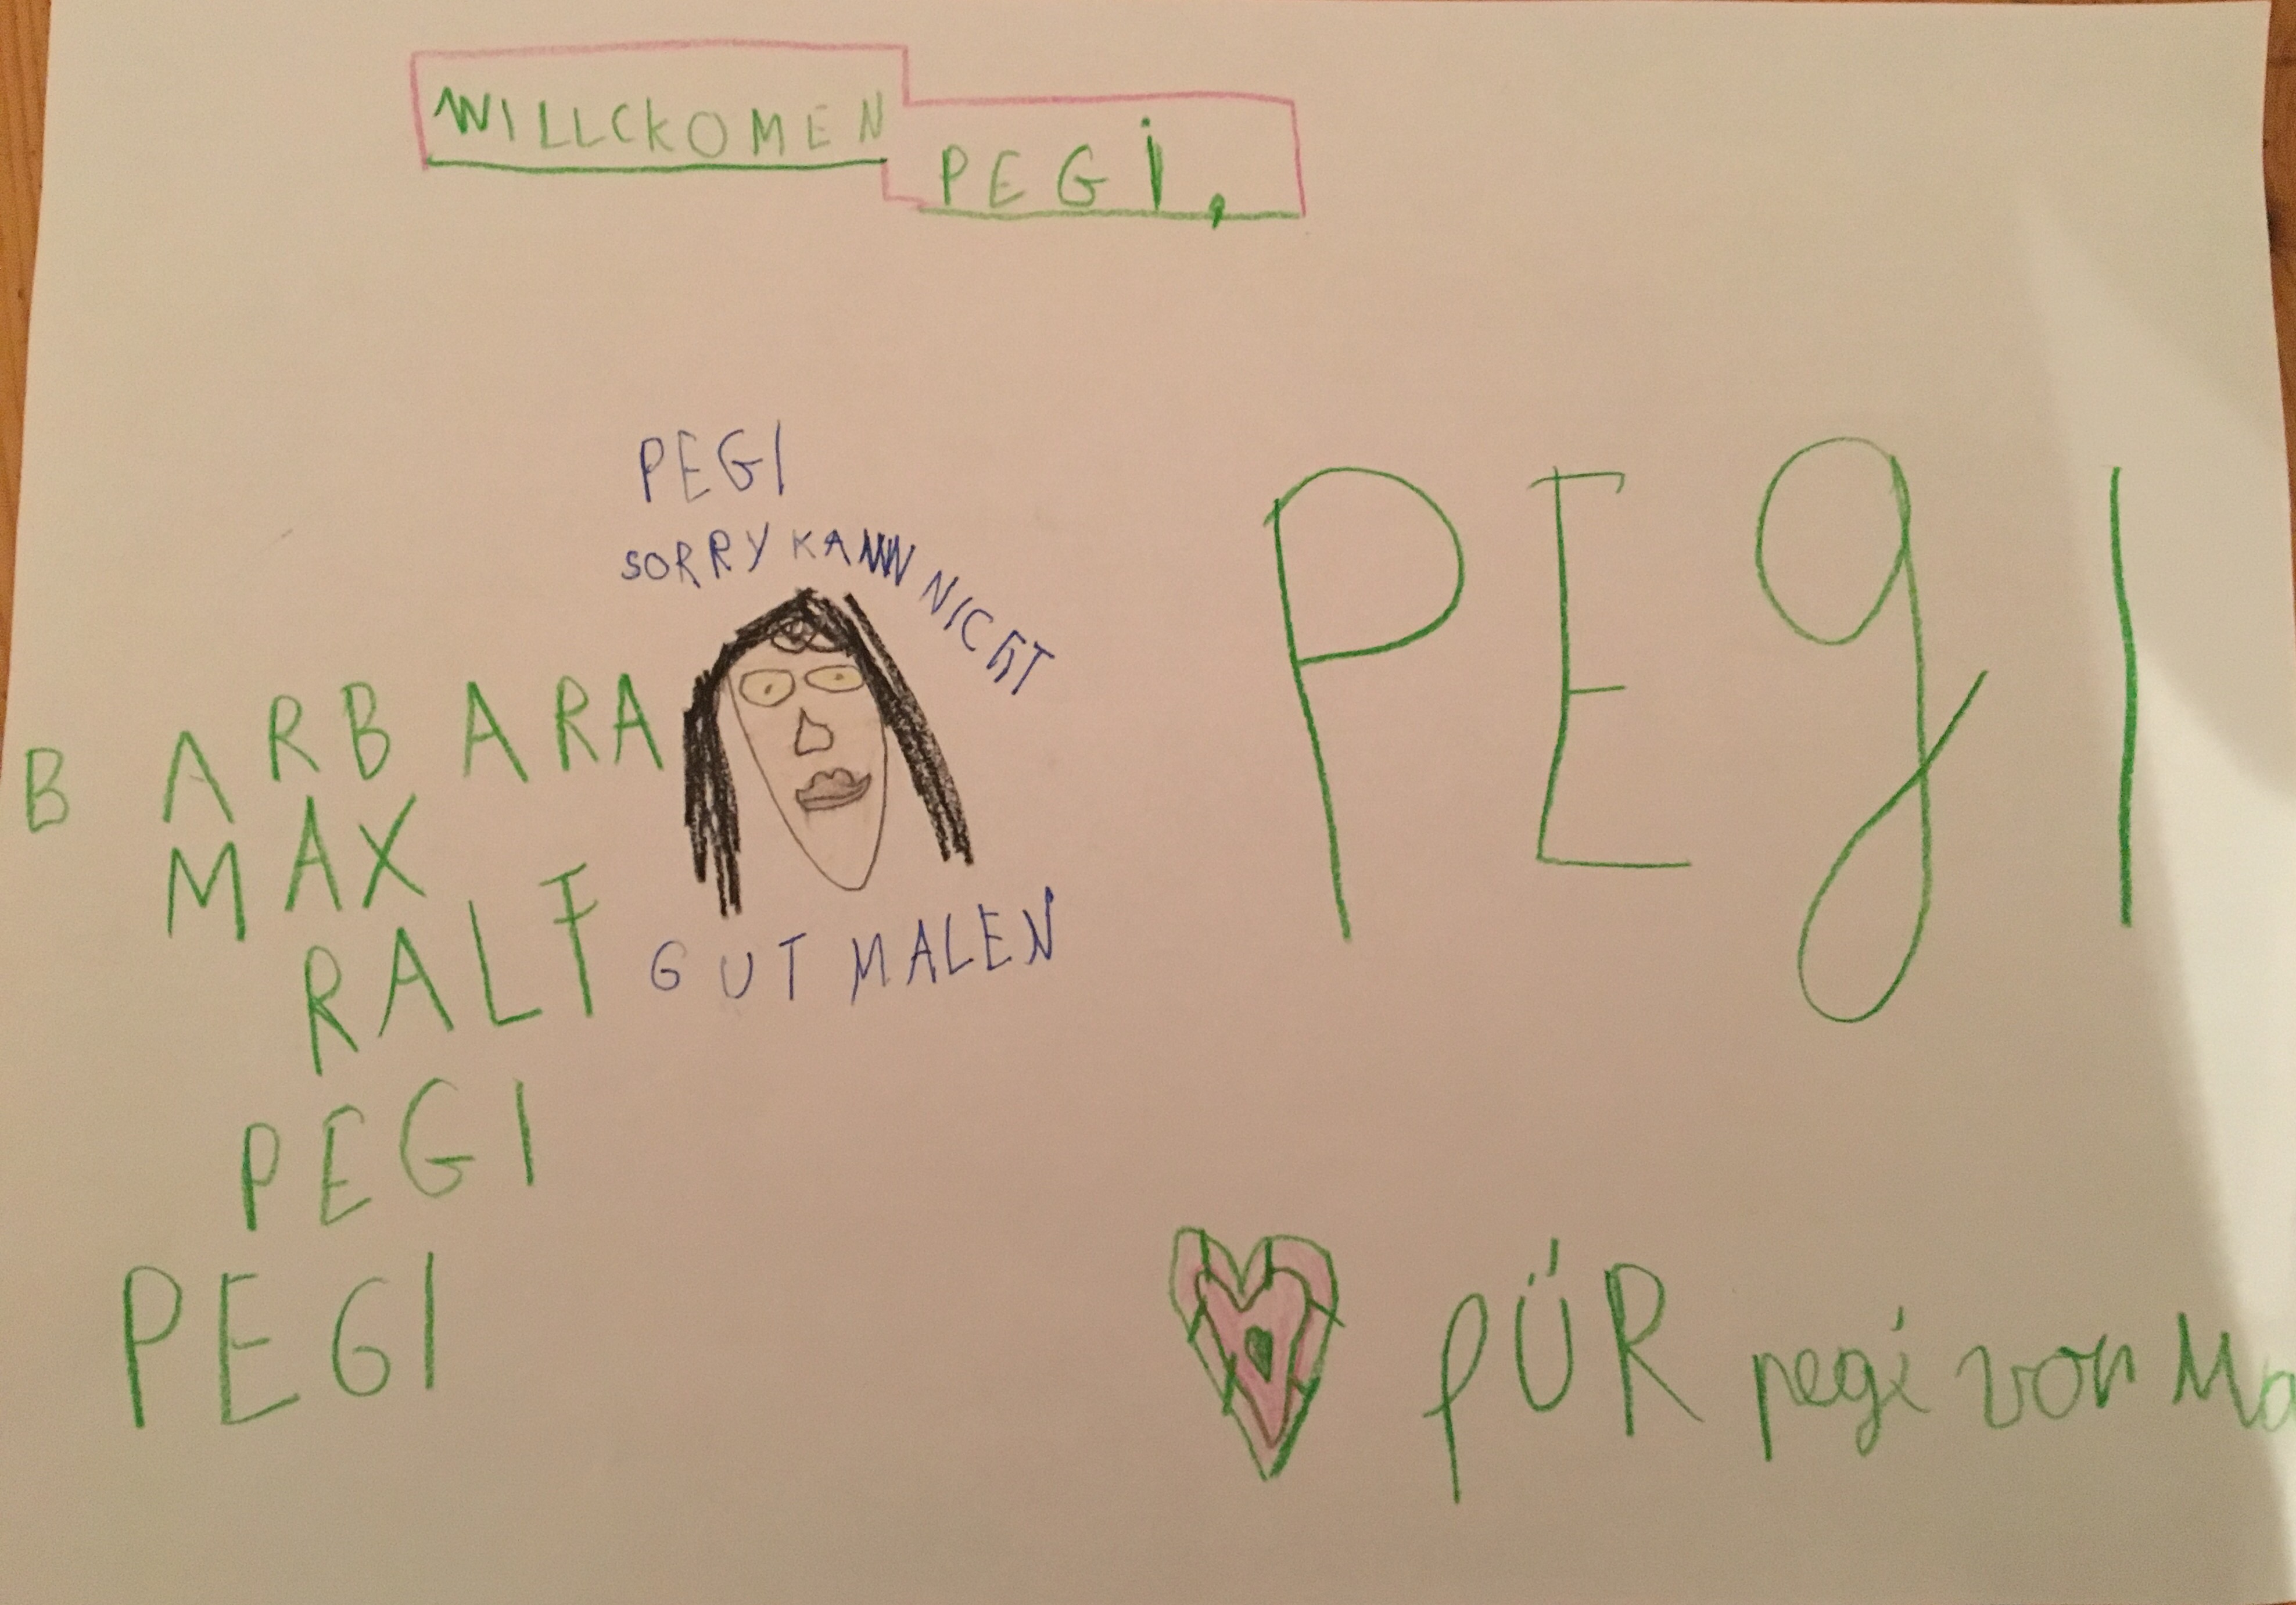 WILLCKOMEN
PEGI,
PEGI
SORRY KANN NICHT
GUT MALEN
BARBARA
MAX
RALF
PEGI
PEGI
PEgI
FÜR pegi von Ma